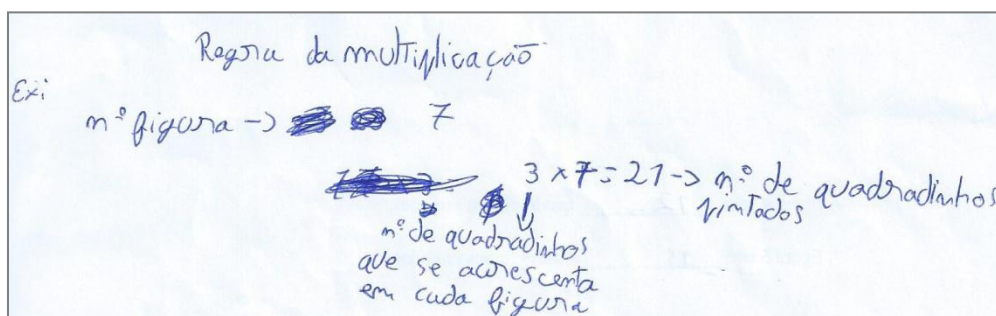 Regra da multiplicação
Ex:
nº figura -> 7
3 x 7 = 21 -> nº de quadradinhos
pintados
nº de quadradinhos
que se acrescenta
em cada figura